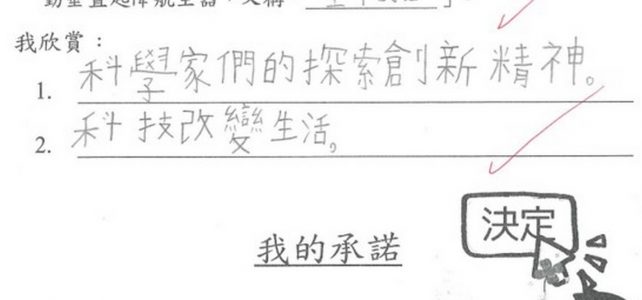 我欣賞：
1. 科學家們的探索創新精神。
2. 科技改變生活。
決定
我的承諾